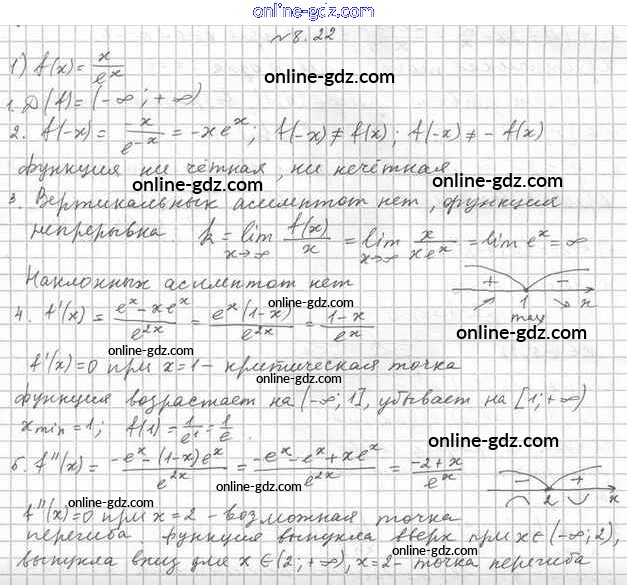 online-gdz.com
№8.22
1) f(x) = x/e^x
online-gdz.com
1. D(f) = (-∞; +∞)
online-gdz.com
2. f(-x) = -x/e^{-x} = -xe^x; f(-x) ≠ f(x); f(-x) ≠ - f(x)
функция ни чётная, ни нечётная
online-gdz.com online-gdz.com
3. Вертикальных асимптот нет, функция
непрерывна k = lim_{x→∞} f(x)/x = lim_{x→∞} x/(xe^x) = lim e^x = ∞
online-gdz.com
Наклонных асимптот нет
+ 1 max - x
4. f'(x) = (e^x - xe^x)/e^{2x} = e^x(1-x)/e^{2x} = (1-x)/e^x
online-gdz.com online-gdz.com
online-gdz.com online-gdz.com
f'(x)=0 при x=1 - критическая точка
online-gdz.com
функция возрастает на (-∞; 1], убывает на [1; +∞)
x min = 1; f(1) = 1/e^1 = 1/e.
online-gdz.com
online-gdz.com
5. f''(x) = (-e^x - (1-x)e^x)/e^{2x} = (-e^x - e^x + xe^x)/e^{2x} = (-2+x)/e^x
- 2 + x
online-gdz.com online-gdz.com
f''(x)=0 при x=2 - возможная точка
online-gdz.com
перегиба функция выпукла вверх при x∈(-∞; 2),
online-gdz.com
выпукла вниз для x∈(2; +∞), x=2 - точка перегиба
online-gdz.com